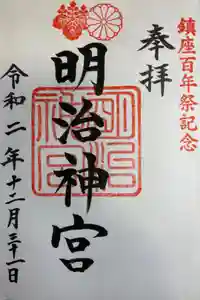 鎮座百年祭記念
奉拝
明治神宮
令和二年十二月三十一日